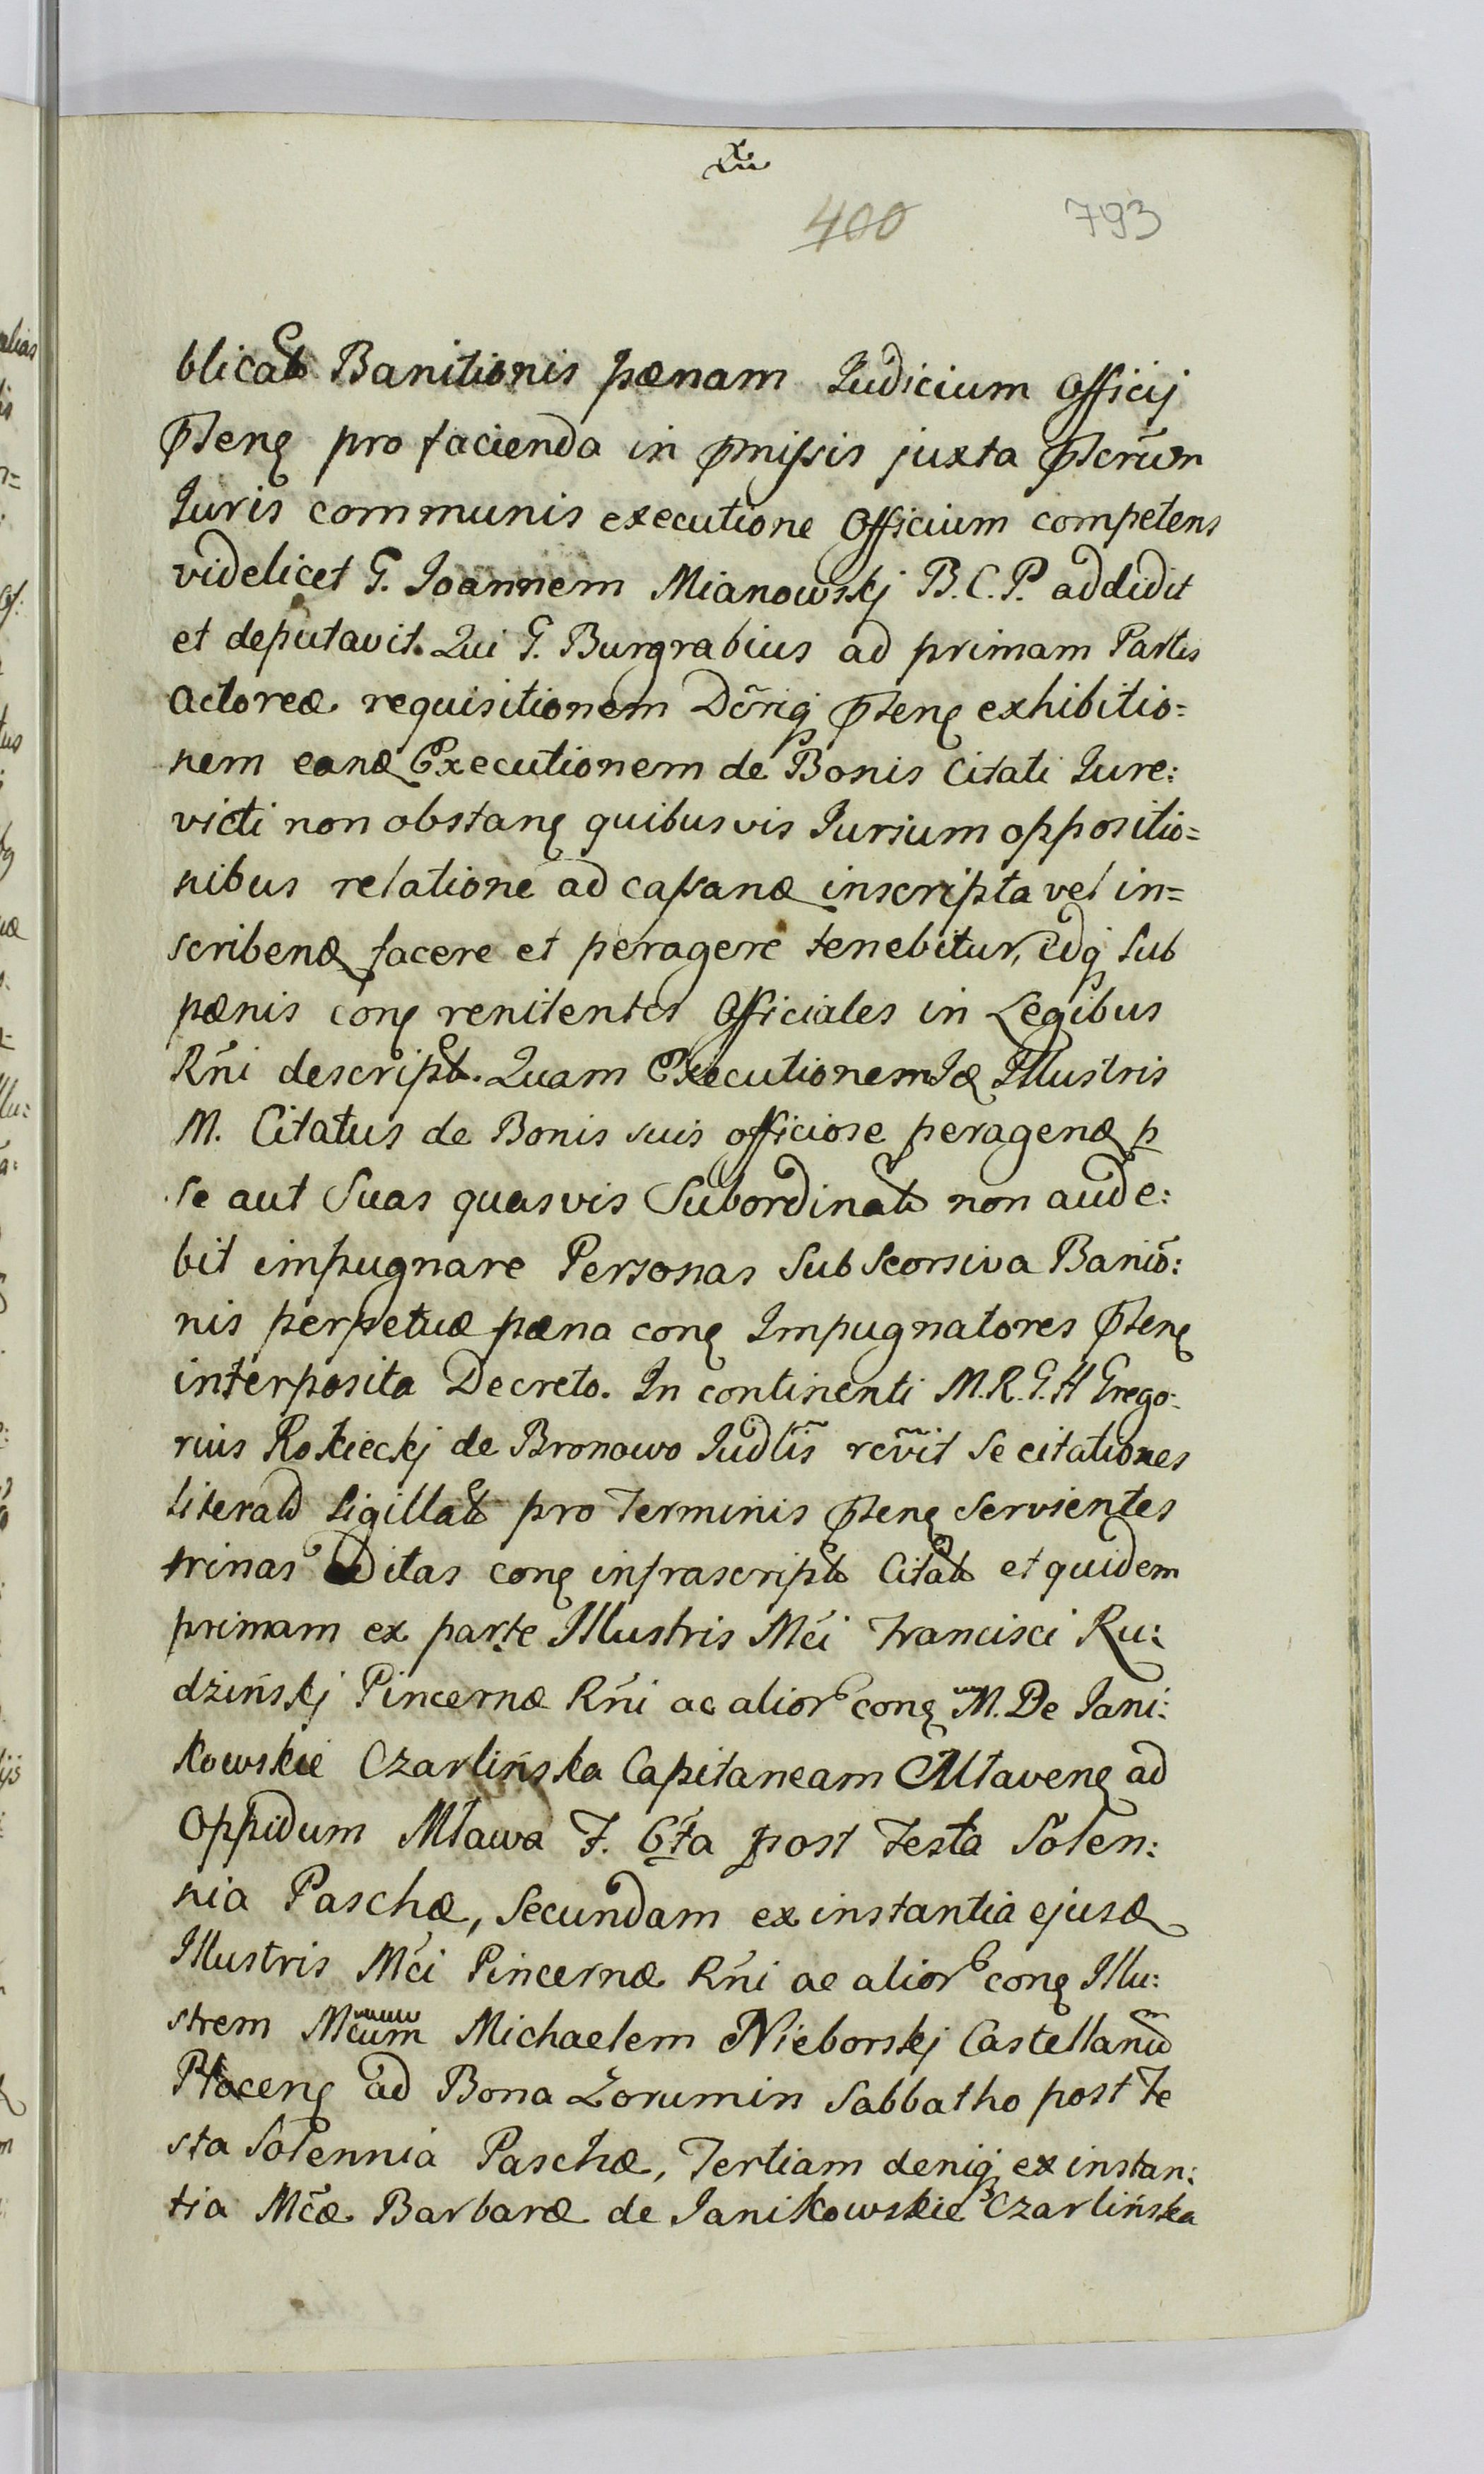 400 793
blicat Banitionis pœnam Iudicium Officij
Pten̨ pro facienda in pmissis juxta Ptcrūm
Iuris communis executione Officium competens
videlicet G. Ioannem Mianowskj B.C.P. addidit
et deputavit. Qui G. Burgrabius ad primam Partis
Actoreæ requisitionem Dōriq̨ pten̨ exhibitio=
nem eanđ Executionem de Bonis Citati Iure:
victi non obstan̨ quibusvis Iurium oppositio=
nibus relatione ad capđanđ inscripta vel in=
scribenđ facere et peragere tenebitur, idq̨ sub
pœnis con̨ renitentes Officiales in Legibus
Rńi descript. Quam Executionem Iđ Illustris
M. Citatus de Bonis suis officiose peragenđ p
se aut Suas quasvis Subordinat non aude:
bit impugnare Personas Sub Seorsiva Banio:
nis perpetuæ pœna con̨ Impugnatores pten̨
interposita Decreto. In continenti M.R.G.H Grego:
rius Rokieckj de Bronowo Iudlis rcvit Se citationes
literald Sigillat pro Terminis pten̨ Servientes
trinas Editas con̨ infrascript Citat et quidem
primam ex parte Illustris Mći Francisci Ru:
dzińskj Pincernæ Rńi ac alior con̨ M. De Iani:
kowskie Czarlińska Capitaneam Młaven̨ ad
Oppidum Mława F. 6ta post Festa Solen:
nia Paschæ, Secundam ex instantia ejusđ
Illustris Mći Pincernæ Rńi ac alior con̨ Illu:
strem Mcum Michaelem Nieborskj Castellanū
Płocen̨ ad Bona Zorumin Sabbatho post Fe
sta Solennia Paschæ, Tertiam deniq̨ ex instan:
tia Mčæ Barbaræ de Ianikowskie Czarlińska